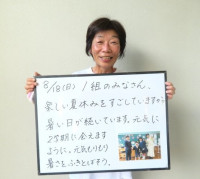 8/18(日) 1組のみなさん、
楽しい夏休みをすごしていますか。
暑い日が続いています。元気に
2学期に会えます
ように。元気もりもり
暑さをふきとばそう。